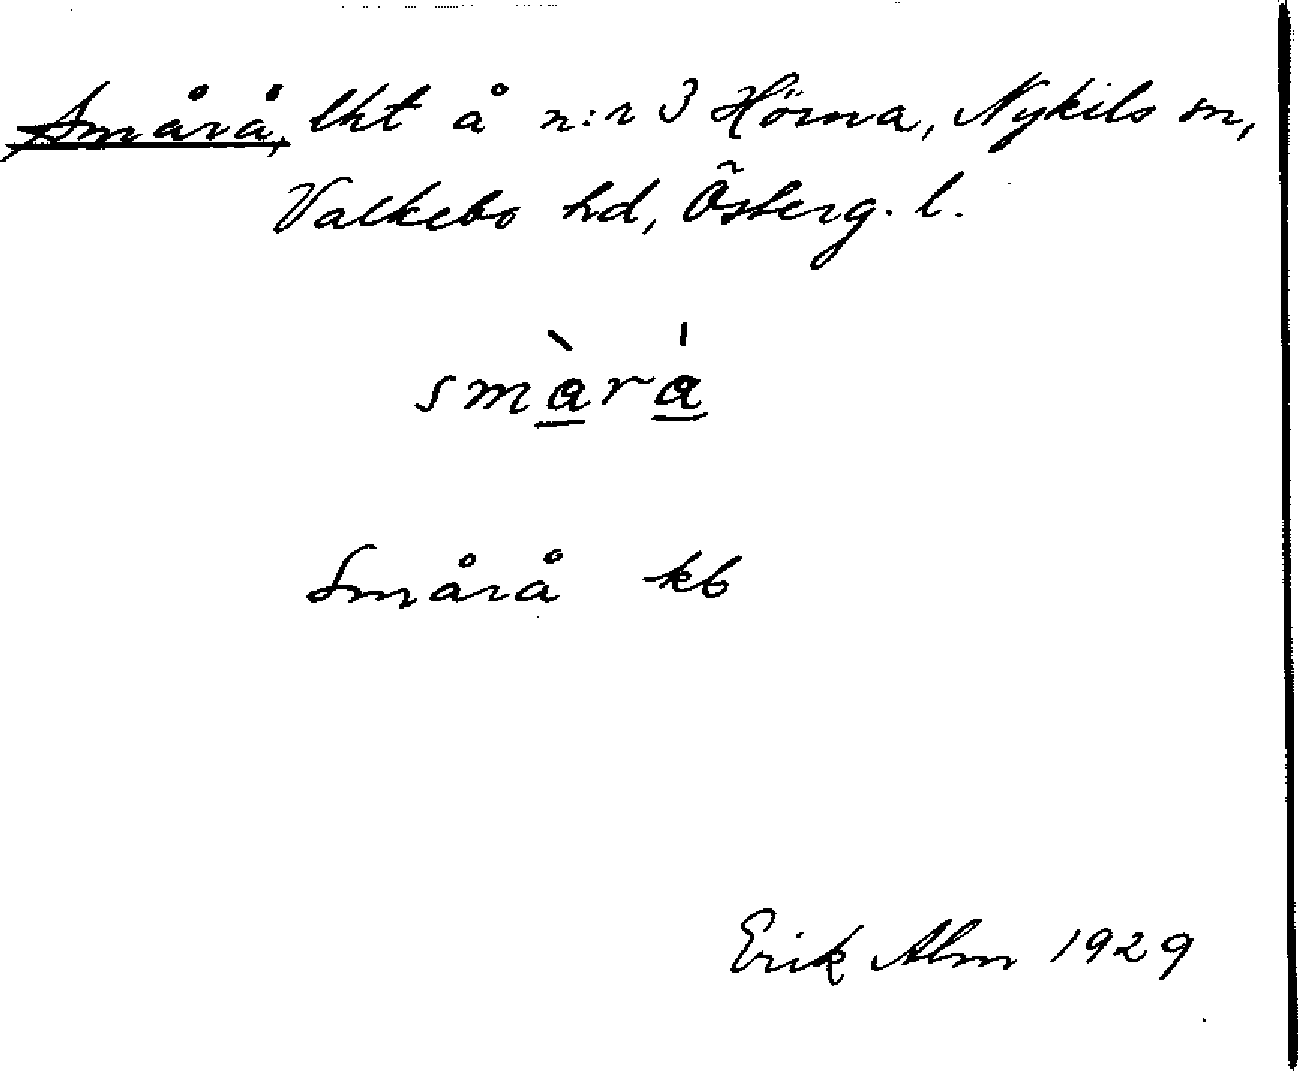 Smårå, lht å n:r 3 Hörna, Nykils sn,
Valkebo hd, Österg. l.
smàrá
Smårå kb
Erik Alm 1929